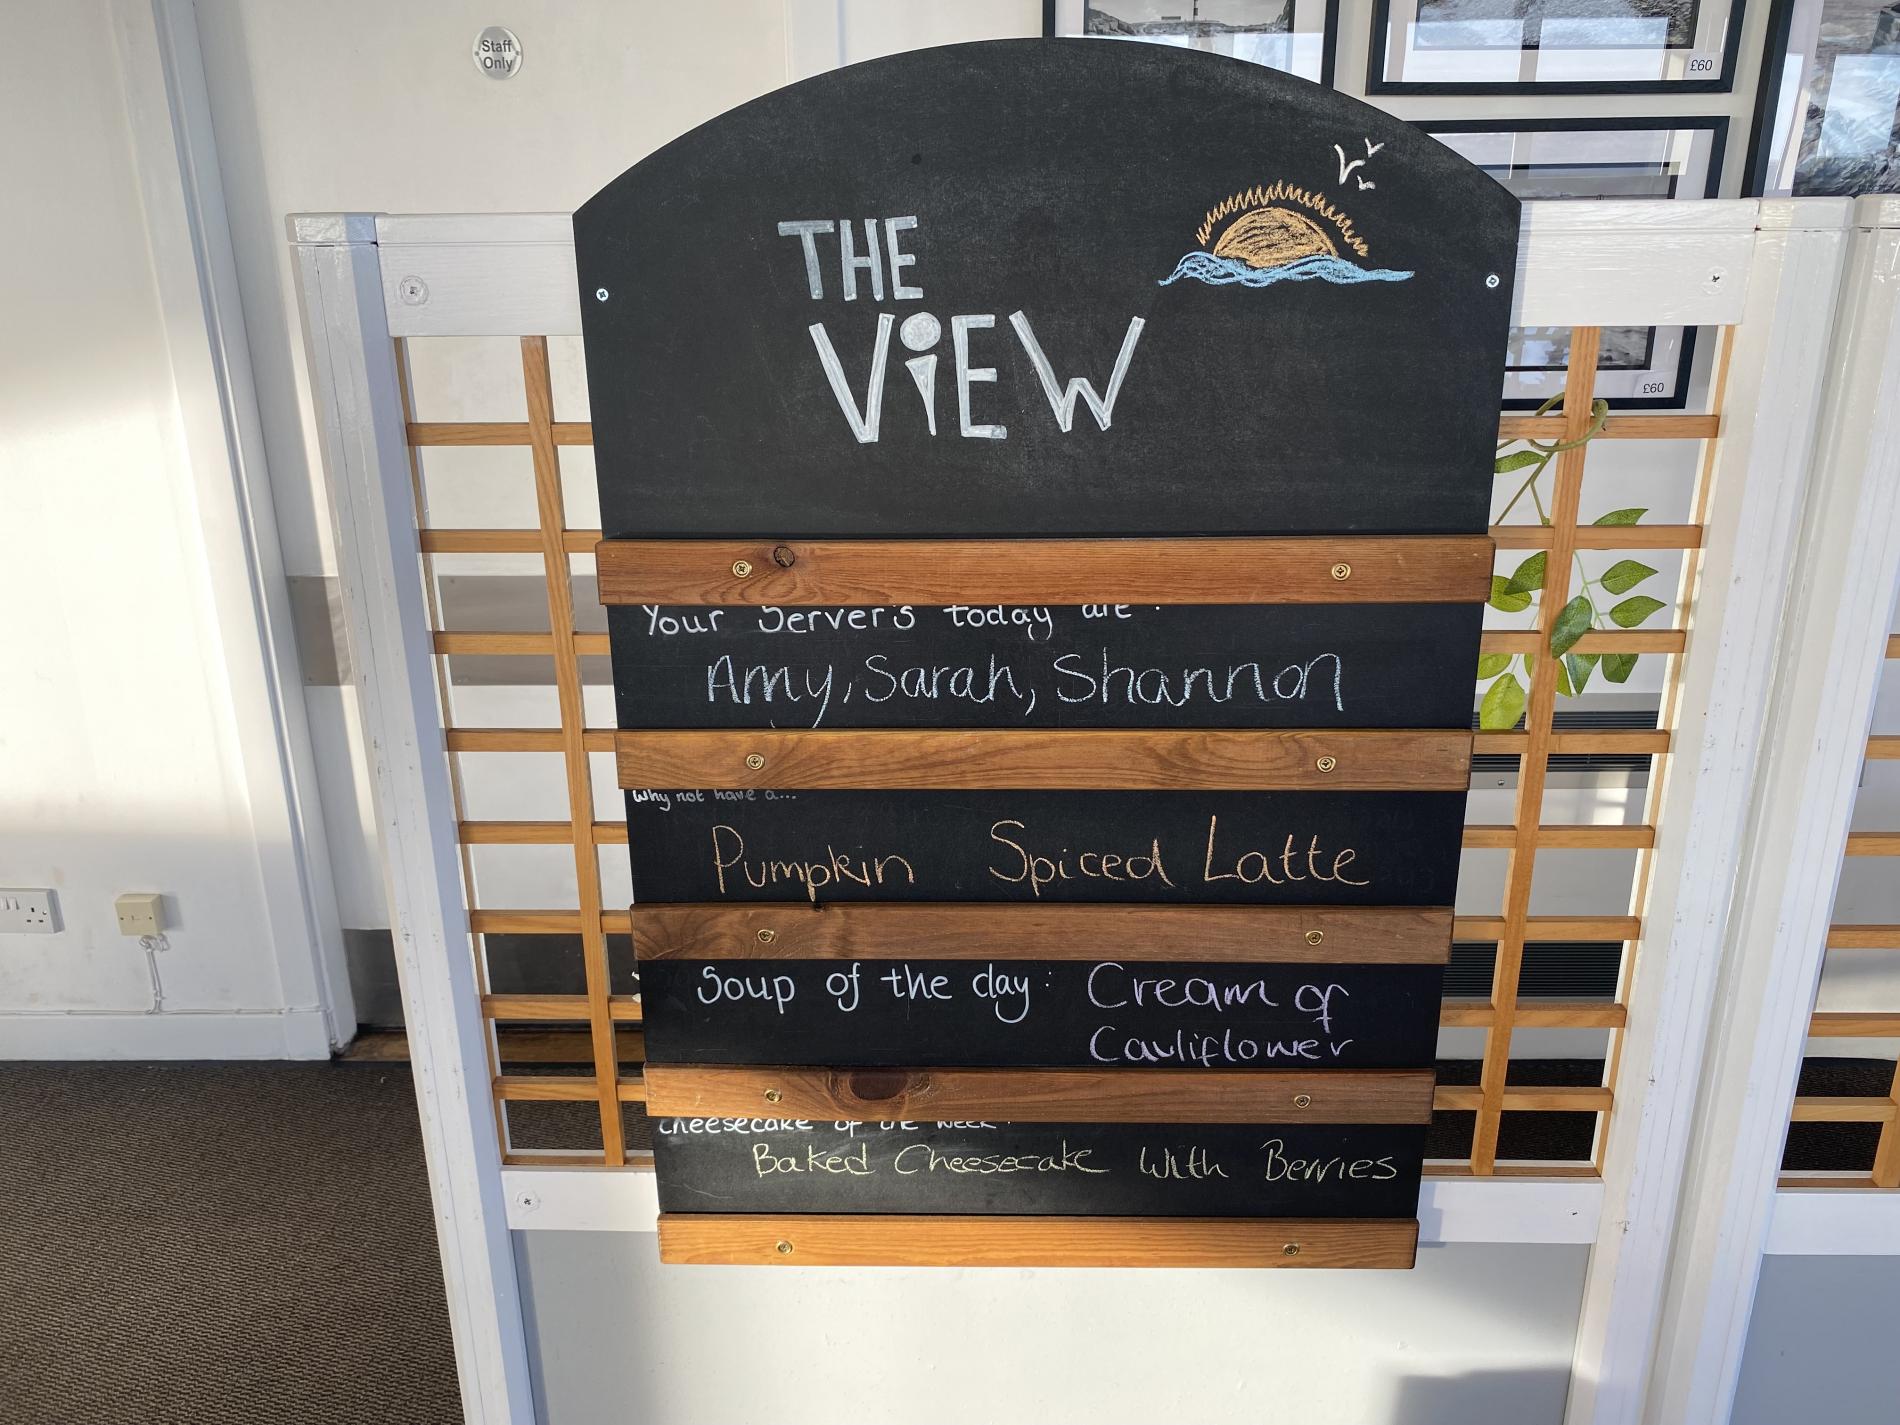 Staff
Only
£60
£60
THE
ViEW
Your Servers today are:
Amy, Sarah, Shannon
Why not have a...
Pumpkin Spiced Latte
Soup of the day: Cream of
Cauliflower
Cheesecake of the week:
Baked Cheesecake With Berries